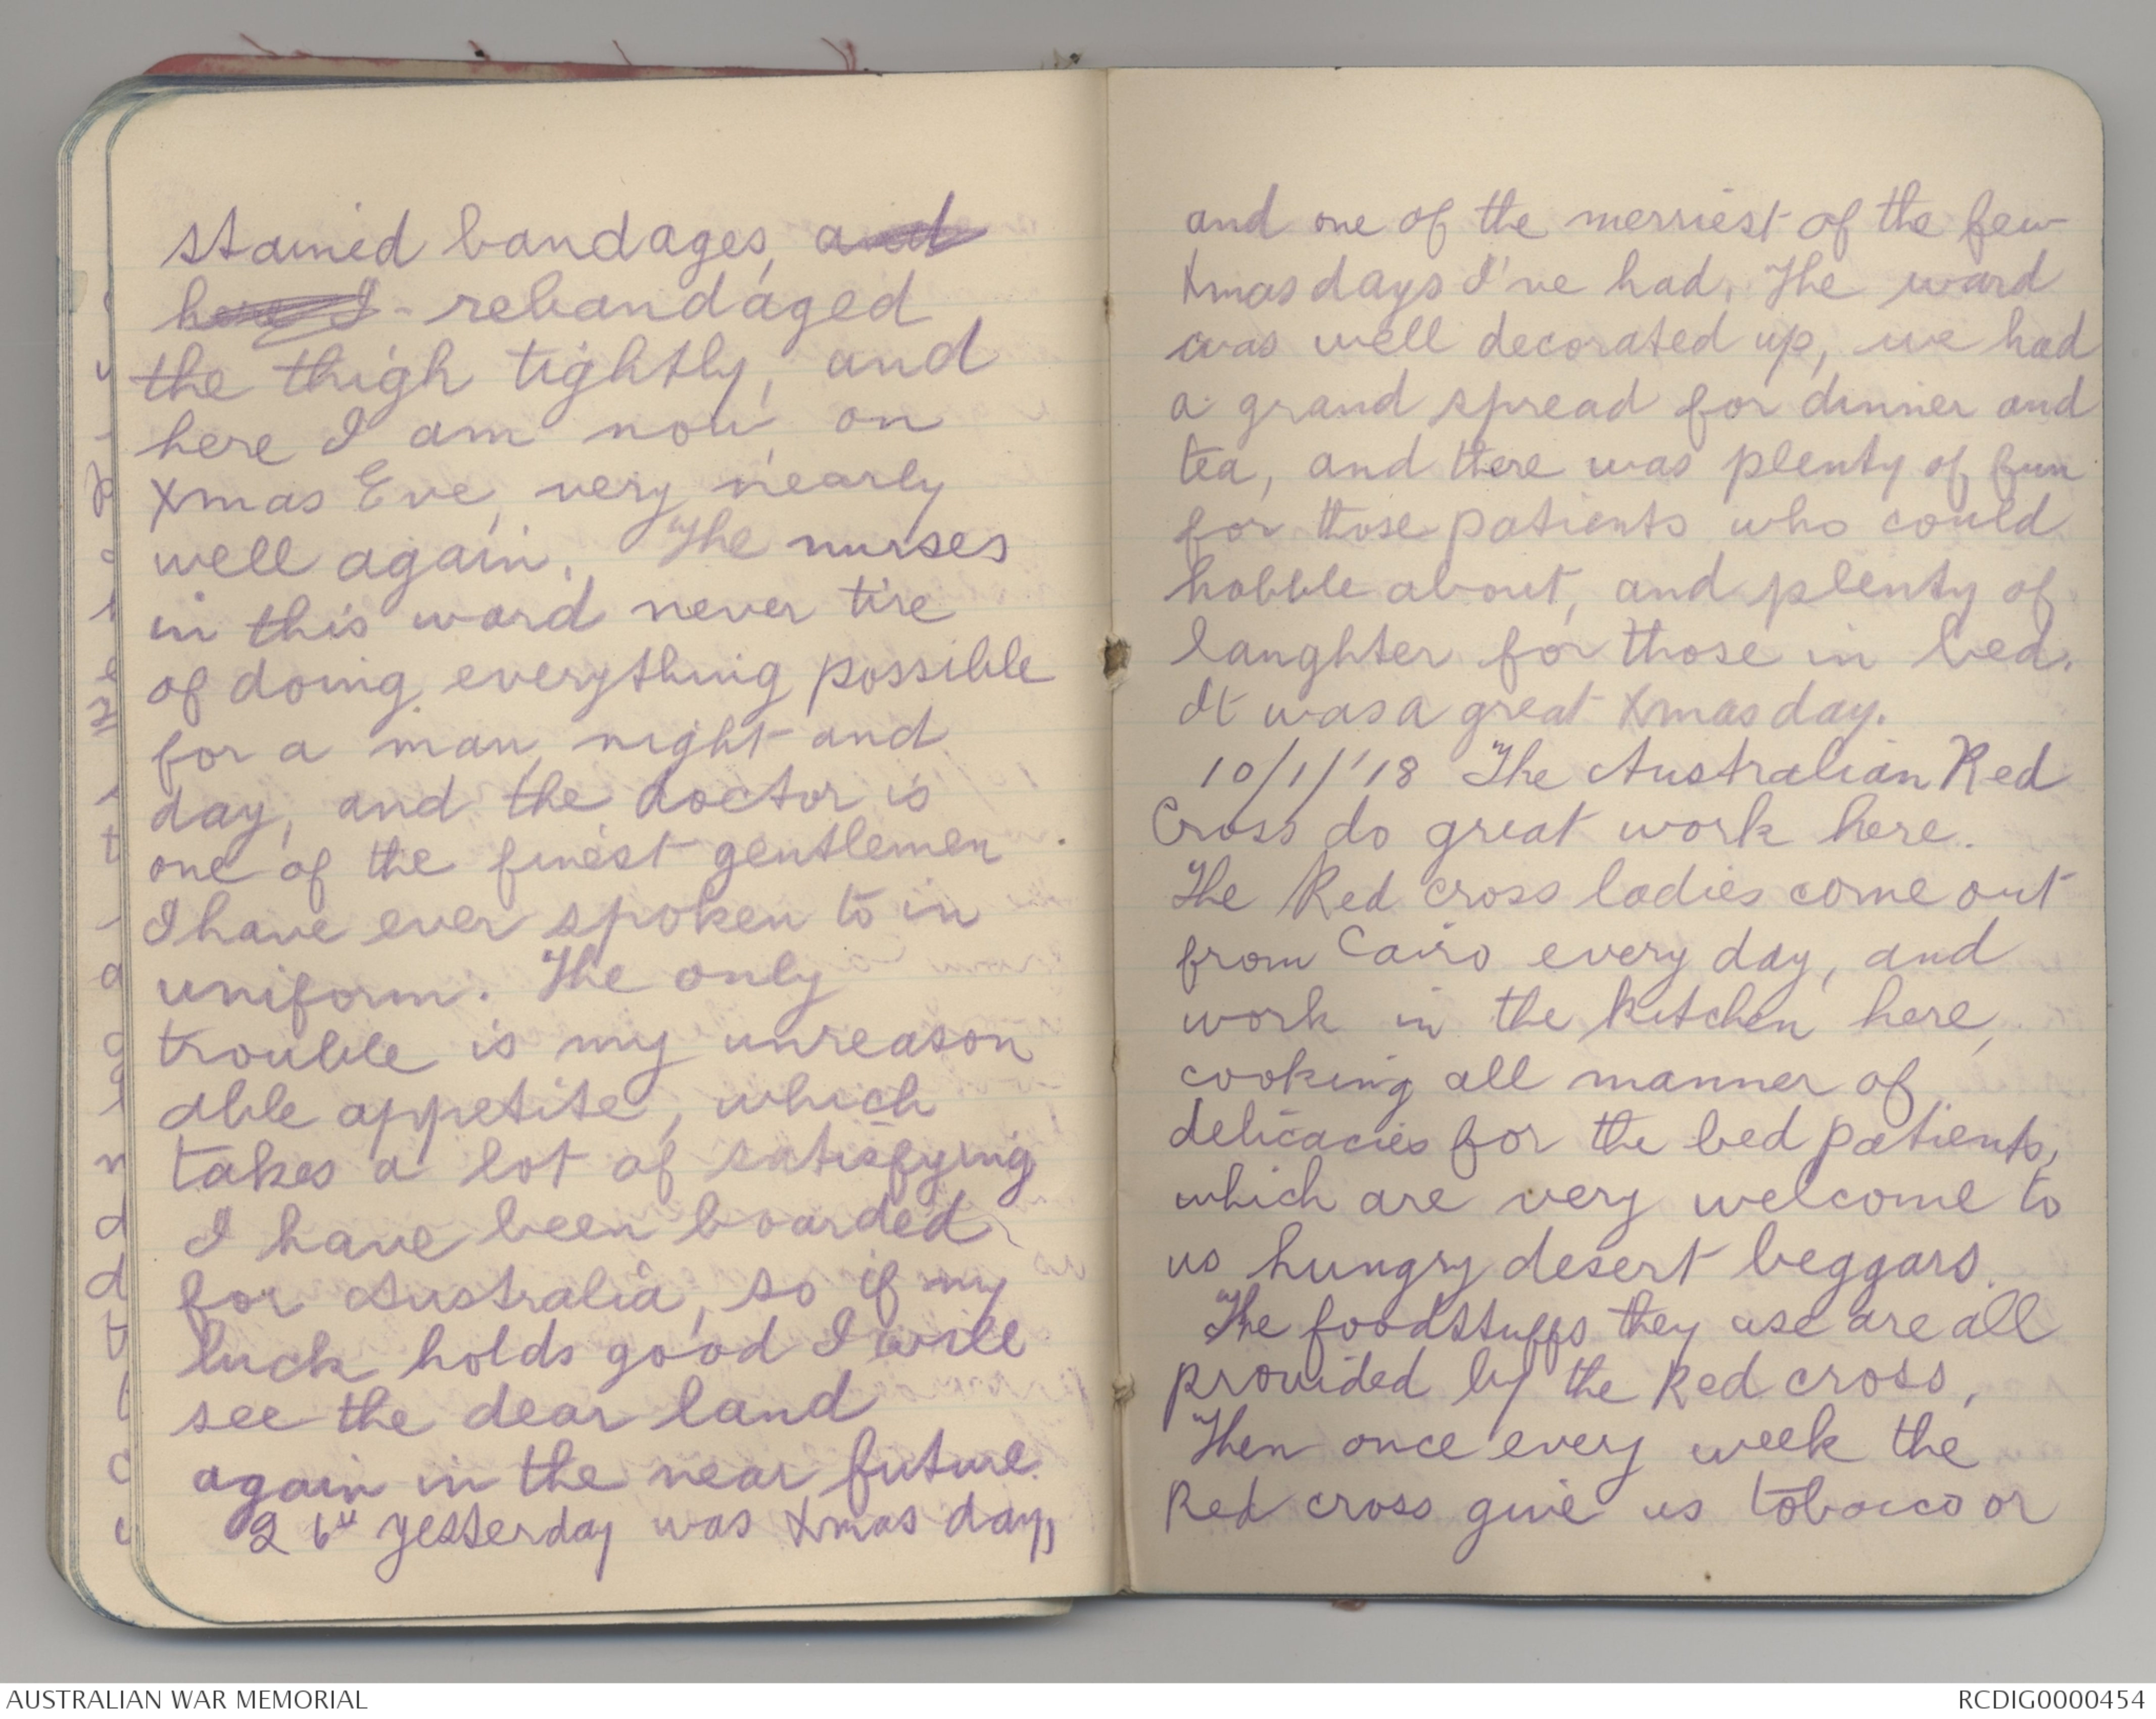 stained bandages, and
here I - rebandaged
the thigh tightly, and
here I am now, on
Xmas Eve, very nearly
well again. The nurses
in this ward never tire
of doing everything possible
for a man, night and
day, and the doctor is
one of the finest gentlemen
I have ever spoken to in
uniform. The only
trouble is my unreason
able appetite, which
takes a lot of satisfying
I have been boarded
for Australia, so if my
luck holds good I will
see the dear land
again in the near future.
26th Yesterday was Xmas day,
and one of the merriest of the few
Xmas days I've had. The ward
was well decorated up, we had
a grand spread for dinner and
tea, and there was plenty of fun
for those patients who could
hobble about, and plenty of
laughter for those in bed.
It was a great Xmas day.
10/1/'18 The Australian Red
Cross do great work here.
The Red Cross ladies come out
from Cairo every day, and
work in the kitchen here,
cooking all manner of
delicacies for the bed patients,
which are very welcome to
us hungry desert beggars.
The foodstuffs they use are all
provided by the Red cross,
Then once every week the
Red cross give us tobacco or
AUSTRALIAN WAR MEMORIAL
RCDIG0000454